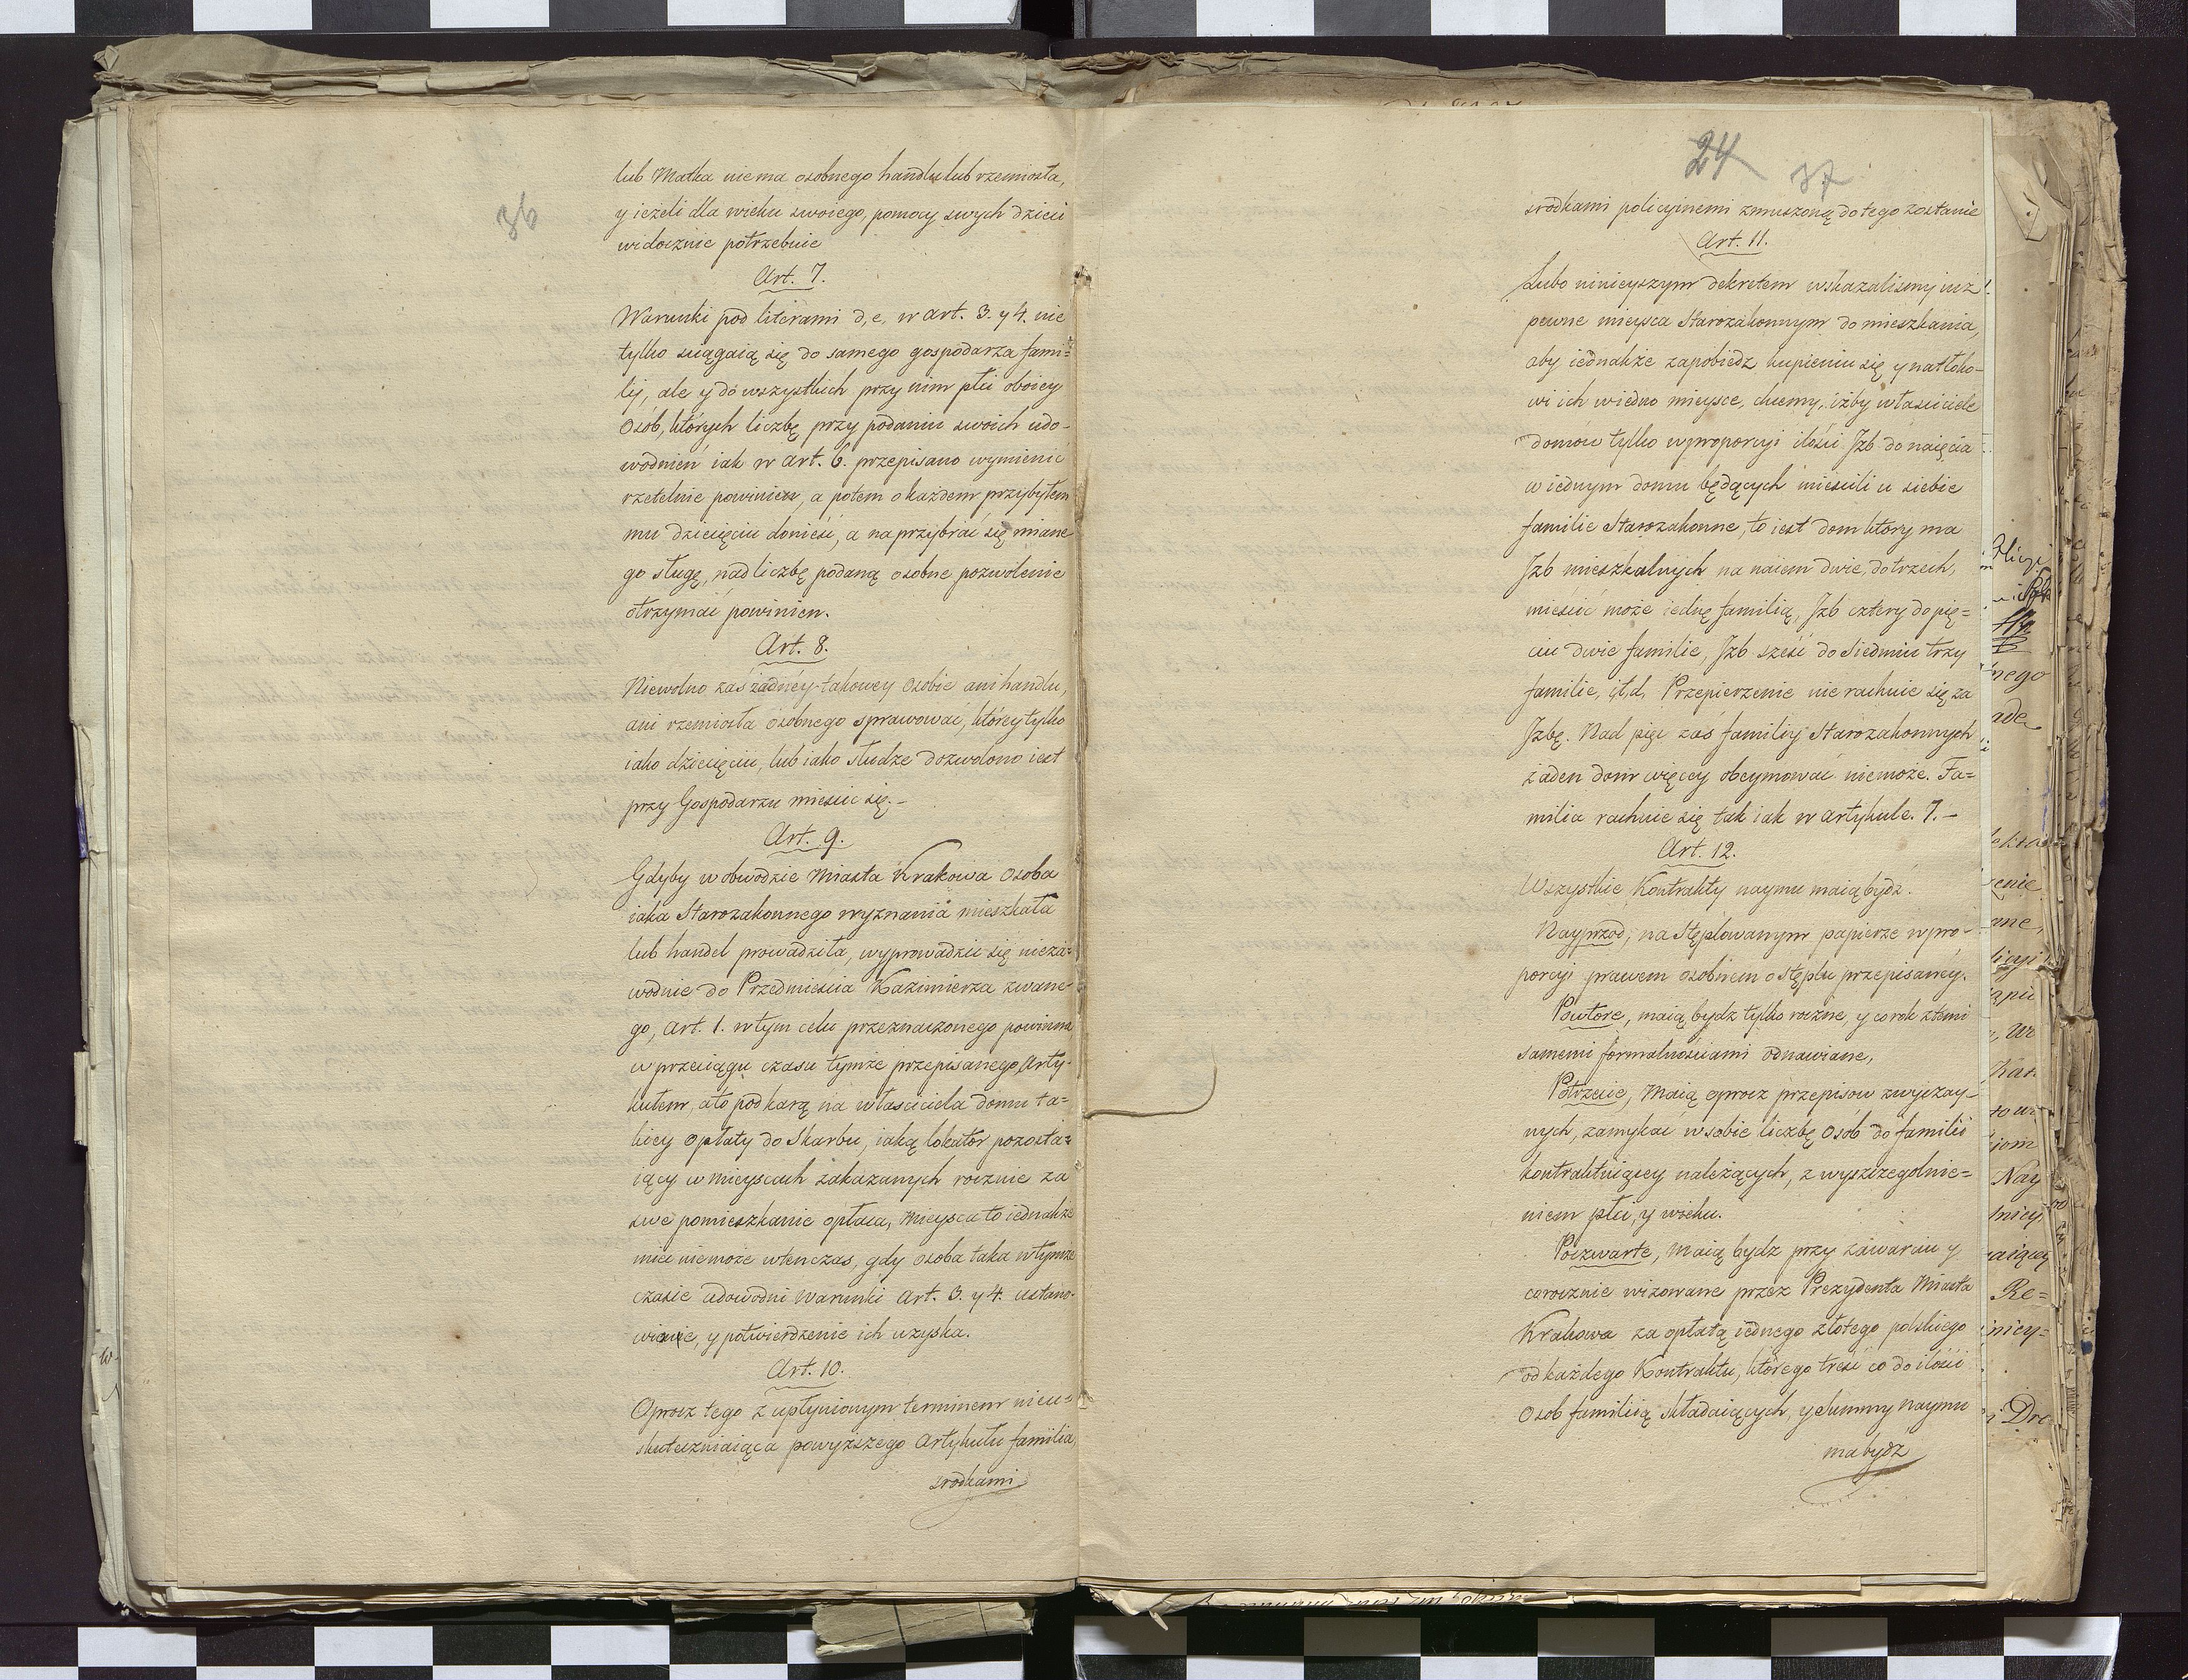 36
lub Matka niema osobnego handlu lub rzemiosła,
y ieżeli dla wieku swoiego, pomocy swych dzieci
widocznie potrzebuie
Art. 7.
Warunki pod literami d, e, w art. 3. y 4. nie
tylko sciągaią się do samego gospodarza fami=
lij, ale y do wszystkich przy nim płci oboiey
Osób, których liczbę przy podaniu swoich udo-
wodnień iak w art. 6. przepisano wymienić
rzetelnie powinien, a potem o każdem przybyłem
mu dziecięciu donieść, a na przybrać się miane
go sługę, nad liczbę podaną osobne pozwolenie
otrzymać powinien.
Art. 8.
Niewolno zaś żadney takowey Osobie ani handlu,
ani rzemiosła osobnego sprawować, którey tylko
iako dziecięciu, lub iako słudze dozwolono iest
przy Gospodarzu mieścić się.-
Art. 9.
Gdyby w obwodzie Miasta Krakowa Osoba
iaka Starozakonnego wyznania mieszkała
lub handel prowadziła, wyprowadzić się nieza=
wodnie do Przedmieścia Kazimierza zwane-
go, art. 1. w tym celu przeznaczonego powinna
w przeciągu czasu tymże przepisanego Arty-
kułem, a to pod karą na właściciela domu ta=
kiey opłaty do Skarbu, iaką lokator pozosta=
iący w mieyscach zakazanych rocznie za
swe pomieszkanie opłaca, Mieysca to iednakże
mieć niemoże wtenczas, gdy osoba taka w tymże
czasie udowodni warunki Art. 3. y 4. ustano-
wione, y potwierdzenie ich uzyska.
Art. 10.
Oprocz tego z upłynionym terminem nieu=
skuteczniaiąca powyższego Artykułu familia,
srodkami
24 37
srodkami policyinemi zmuszoną do tego zostanie
Art. 11.
Lubo ninieyszym dekretem wskazalismy iuż
pewne mieysca Starozakonnym do mieszkania,
aby iednakże zapobiedz kupieniu się y natłoko-
wi ich w iedno mieysce, chcemy, iżby właściciele
domów tylko w proporcyi ilości Jzb do naięcia
w iednym domu będących mieścili u siebie
familie Starozakonne, to iest dom który ma
Jzb mieszkalnych na naiem dwie, do trzech,
mieścić może iednę familią, Jzb cztery do pię=
ciu dwie familie, Jzb sześć do Siedmiu trzy
familie, i t. d. Przepierzenie nie rachuie się za
Jzbę. Nad pięć zaś familiy Starozakonnych
żaden dom więcey obeymować niemoże. Fa=
milia rachuie się tak iak w artykule. 7.-
Art. 12.
Wszystkie Kontrakty naymu maią bydź.
Nayprzod, na Stęplowanym papierze w pro-
porcyi prawem osobnem o Stęplu przepisaney.
Powtore, maią bydz tylko roczne, y co rok z temi
samemi formalnościami odnawiane,
Potrzecie, Maią oprocz przepisow zwyczay-
nych, zamykać w sobie liczbę Osób do familii
kontraktuiącey należących, z wyszczegolnie=
niem płci, y wieku.
Poczwarte, Maią bydz przy zawarciu y
corocznie wizowane przez Prezydenta Miasta
Krakowa za opłatą iednego złotego polskiego
od każdego Kontraktu, którego treść co do ilości
Osob familiią składaiących, y Summy naymu
ma bydź